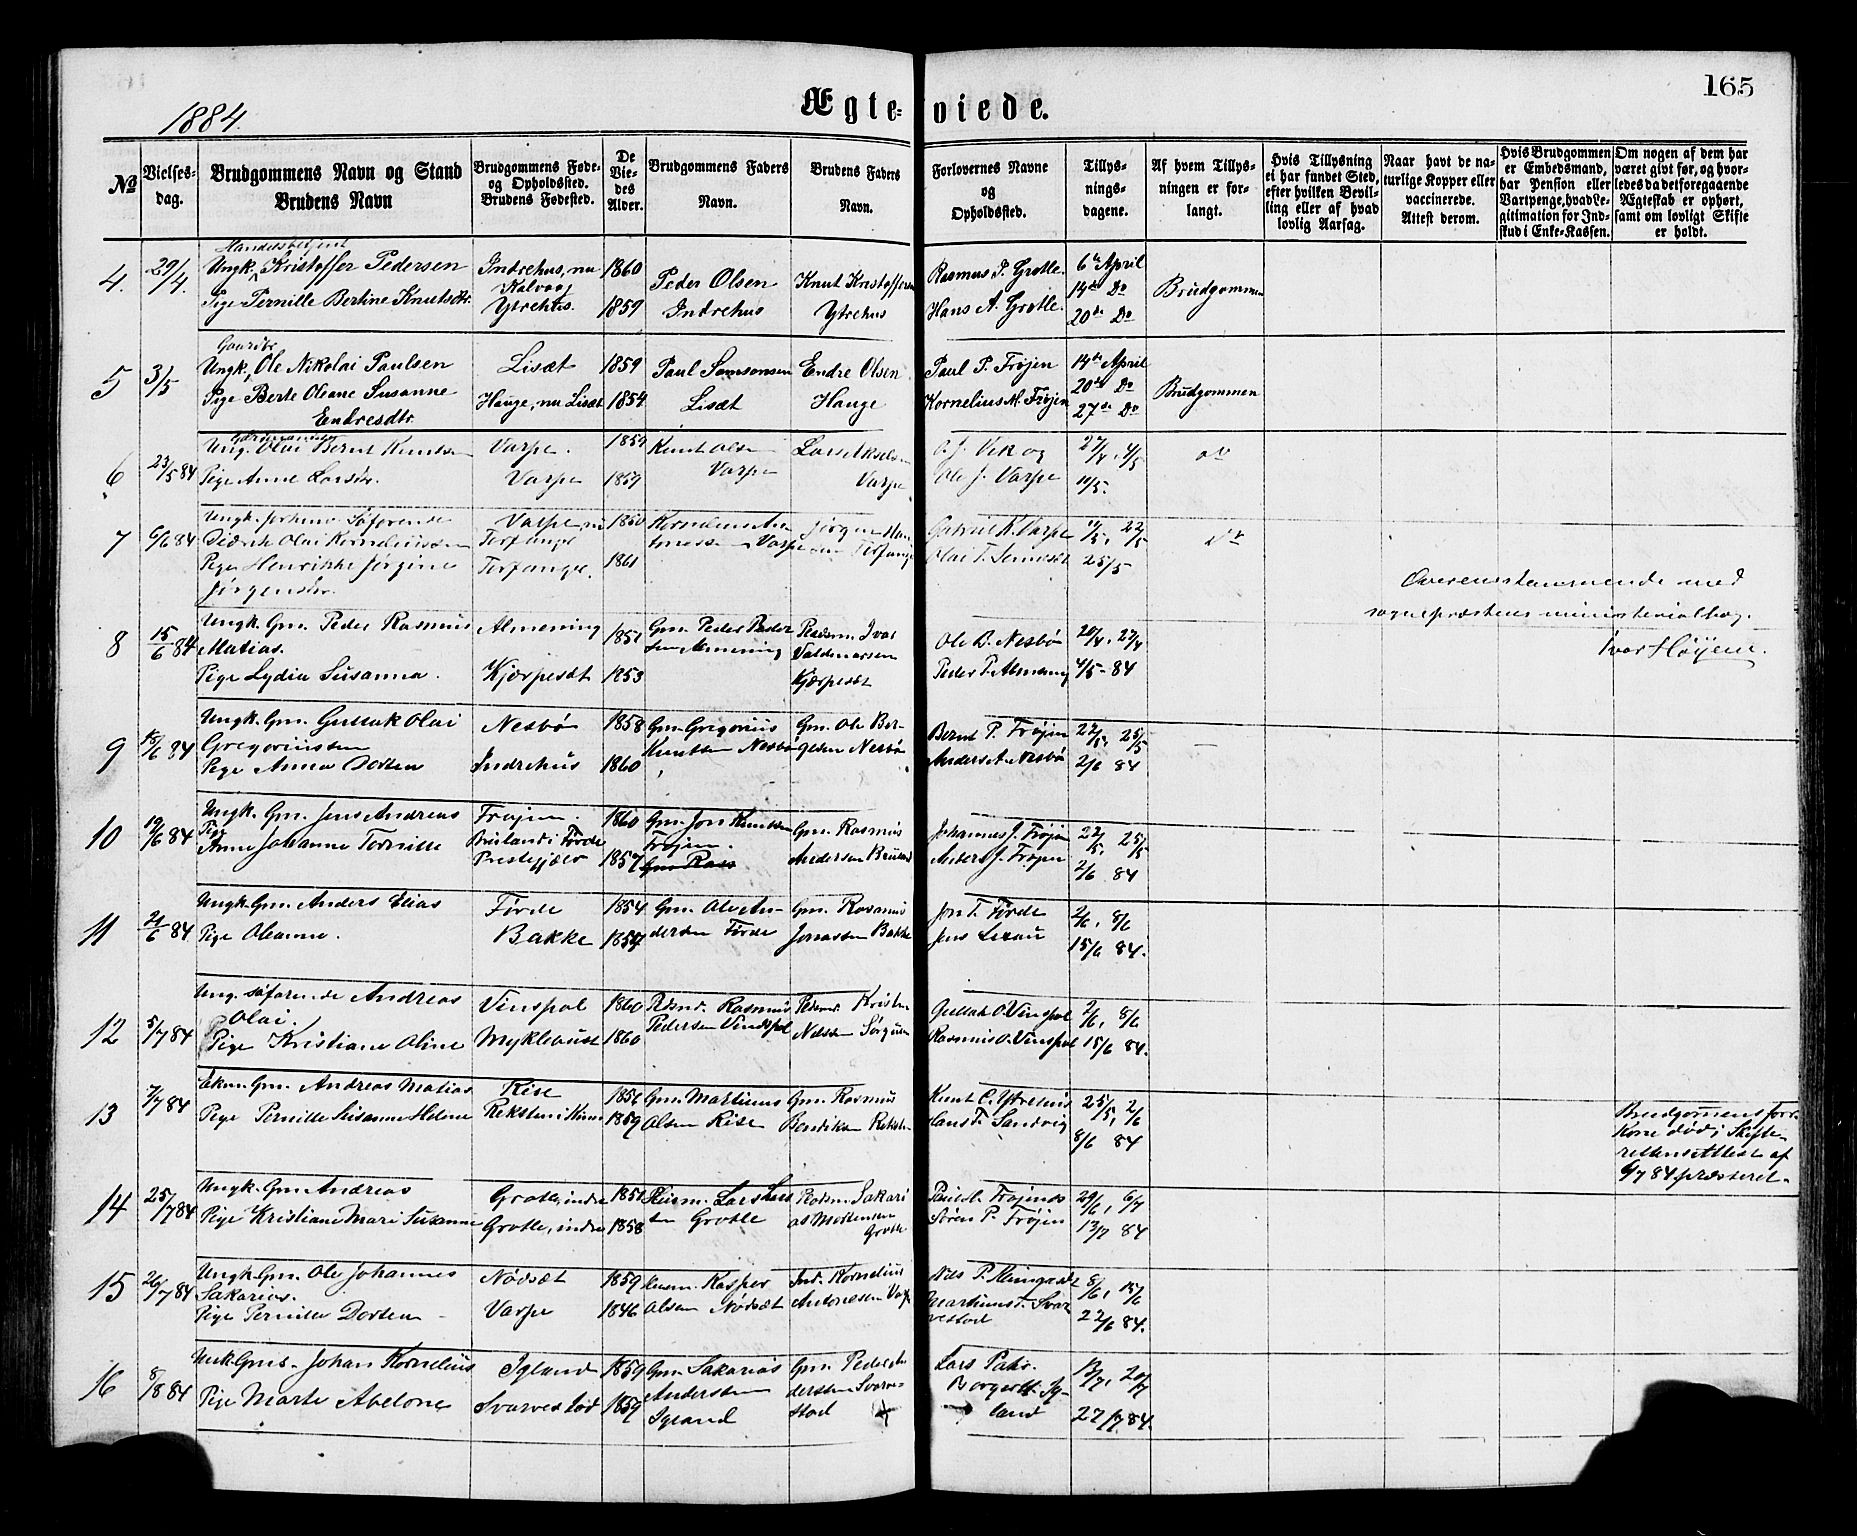 165
1884.
Ægte- viede.
№
Vielses-
dag.
Brudgommens Navn og Stand
Brudens Navn
Brudgommens Føde-
og Opholdssted.
Brudens Fødested.
De
Vie-
des
Alder.
Brudgommens Faders
Navn.
Brudens Faders
Navn.
Forlovernes Navne
og
Opholdssted.
Tillys-
nings-
dagene.
Af hvem Tillys-
ningen er for-
langt.
Hvis Tillysning
ei har fundet Sted,
efter hvilken Bevil-
ling eller af hvad
lovlig Aarsag.
Naar havt de na-
turlige Kopper eller
vaccinerede.
Attest derom.
Hvis Brudgommen
er Embedsmand,
har Pension eller
Vartpenge, hvad Le-
gitimation for Ind-
skud i Enke-Kassen.
Om nogen af dem har
været givt før, og hvor-
ledes da det foregaaende
Ægteskab er ophørt,
samt om lovligt Skifte
er holdt.
4.
29/4.
Handelsbetjent
Ungk. Kristoffer Pedersen
Pige Pernille Bertine Knutsdtr.
Indrehus, nu
Kalvaag
Ytrehus.
1860
1859
Peder Olsen
Indrehus
Knut Kristoffersen
Ytrehus
Rasmus P. Grotle.
Hans A. Grotle.
6te April
14de Do
20de Do
Brudgommen
5
3/5
Gaardbr.
Ungk. Ole Nikolai Paulsen
Pige Berte Oleane Susanne
Endresdtr.
Lisæt
Hauge, nu Lisæt
1859
1854
Paul Samsonsen
Lisæt
Endre Olsen
Hauge
Paul P. Frøjen
Kornelius M. Frøjen
14de April
20de Do
27de Do
Brudgommen
6
23/5 84
Ung. Olai Bernt Knutsen
Pige Anne Larsdr.
Varpe.
Varpe
1859
1859
Knut Olsen
Varpe
Lars Akselsen
Varpe
O. J. Vik og
Ole J. Varpe
27/4, 4/5
11/5.
do
7
6/6 84
Ungk. Søfarende
Didrik Olai Korneliussen
Pige Henrikke Jørgine
Jørgensdr.
Varpe nu
Torfange
Torfange.
1860
1861
Kornelius An-
tonessen Varpe
Jørgen Han-
sen Torfange
Gabriel K. Varpe
Olai T.
11/5, 22/5
25/5
do
Overensstemmende med
sogneprestens ministerialbog.
Ivar Høyem.
8
15/6 84
Ungk. Gm. Peder Rasmus
Matias.
Pige Lydia Susanna.
Almening
Kjærpesæt
1851
1853
Gm. Peder Peder
sen Almening
Pedersm. Ivar
Valdemarsen
Kjærpesæt
Ole B. Nesbø
Peder P. Almening
20/4, 27/4
4/5 - 84
9
18/6 84
Ungk. Gm. Gullak Olai
Gregoriussen
Pige Anna Dorten
Nesbø
Indrehus
1858
1860
Gm. Gregorius
Knutsen Nesbø
Gm. Ole Bør-
gesen Nesbø
Bernt P. Frøjen
Anders A. Nesbø
22/5, 25/5
2/6 84
10
19/6 84
Ungk. Gm. Jens Andreas
Pige
Anne Johanne Tornille
Frøjen.
Bruland i Førde
Prestegjæld
1860
1857
Gm. Jon Knutsen
Frøjen.
Gm. Ras
Gm. Rasmus
Andersen Bruland
Johannes J. Frøjen
Anders J. Frøjen
22/5, 25/5
2/6 84
11
21/6 84
Ungk. Gm. Anders Elias
Pige Oleanna.
Førde
Bakke
1854
1857
Gm. Ole An-
dersen Førde
Gm. Rasmus
Jonassen Bakke
Jon T. Førde
Jens
2/6, 8/6
15/6 84.
12
5/7 84
Ung. søfarende Andreas
Olai.
Pige Kristiane Oline
Vinspol
Myklebust
1860
1860
Pedersen Vindspol
Nelssen
Gullak O. Vinspol
Rasmus O. Vinspol
2/6, 8/6
15/6 84.
13
7/7 84
Ekm. Gm. Andreas Matias
Pige Pernille Susanne Helene
Rise
Reksten i Kinn
1856
1859
Gm. Martinus
Olsen Rise
Gm. Rasmus
Bendiksen Reksten
Knut C. Ytrehus
Hans T. Sandvig
25/5, 2/6
8/6 84
Brudgommens forr.
Kone død; Skifte-
rettens Attest af
6/7 84 præsteret.
14
25/7 84
Ungk. Gm. Andreas
Pige Kristiane Mari Susanne
Grotle, indre
Grotle, indre
1851
1858
Husm. Lars Lars
sen Grotle
Pedersm. Sakari
as Mortensen
Grotle
Søren P. Frøjen
29/6, 6/7
13/7 84
15
26/7 84
Ungk. Gm. Ole Johannes
Sakarias.
Pige Pernille Dorten
Nødsæt
Varpe
1859
1846
Husm. Kasper
Olsen Nødsæt
Ind. Kornelius
Antonessen Varpe
Nils P.
Martinus T. Svar
vestad
8/6, 15/6
22/6 84.
16
8/8 84
Ungk. Gms. Johan Kornelius
Pige Marte Abelone
Igland
Svarvestad
1859
1859
Gm. Sakarias
Anderssen
Igland
Gm. Peder An-
derssen Svarve-
stad
Lars
Borgert Ig-
land
13/7, 20/7
27/7 84.